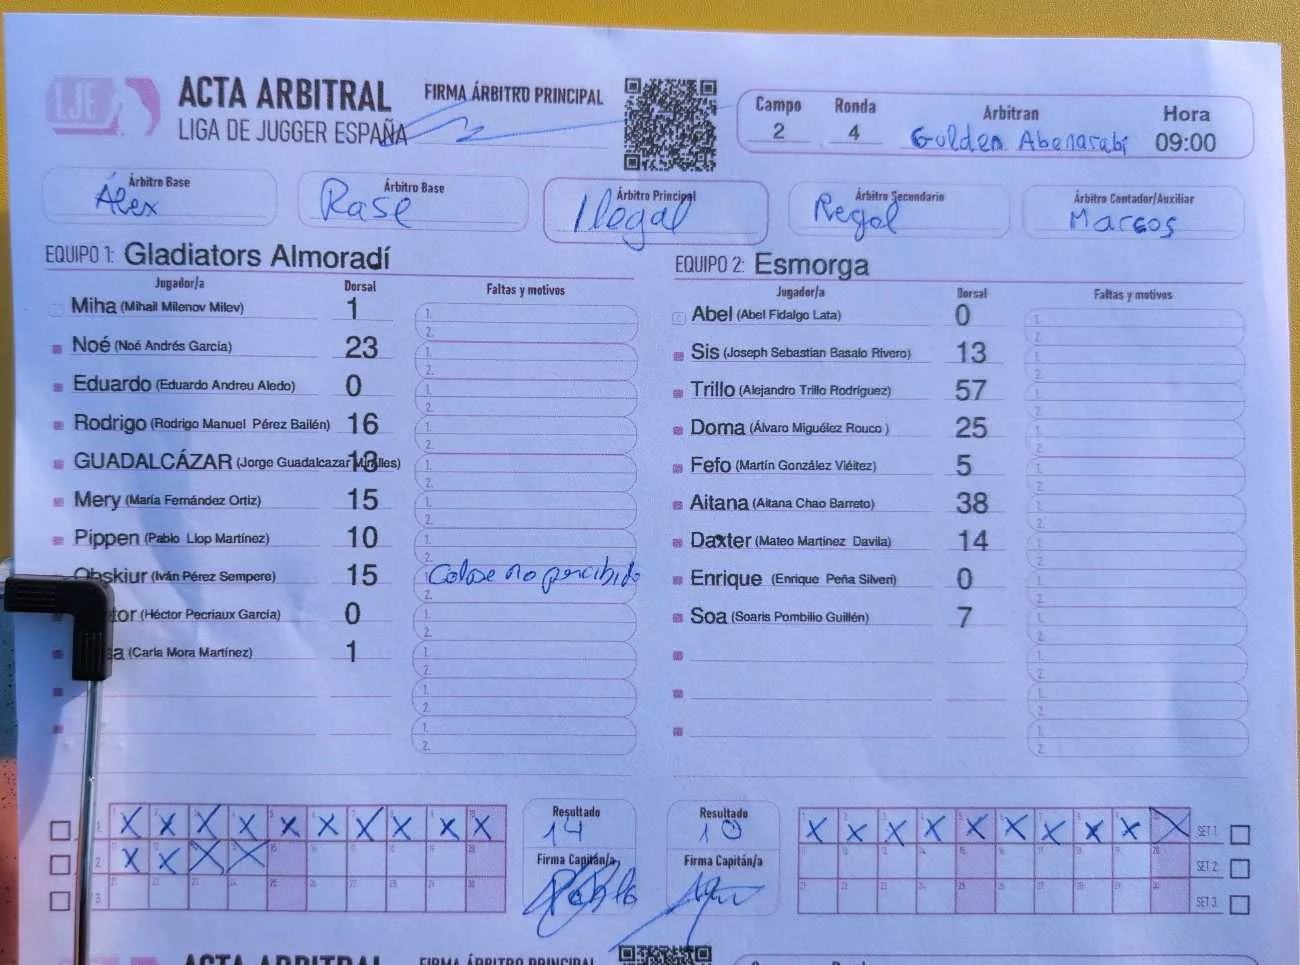 LJE
ACTA ARBITRAL
LIGA DE JUGGER ESPAÑA
FIRMA ÁRBITRO PRINCIPAL
Campo Ronda Arbitran Hora
2 4 Golden Abenarabi 09:00
Árbitro Base Árbitro Base Árbitro Principal Árbitro Secundario Árbitro Contador/Auxiliar
Álex Rase Ilegal Regol Marcos
EQUIPO 1: Gladiators Almoradí
Jugador/a Dorsal Faltas y motivos
Miha (Mihail Milenov Milev) 1
Noé (Noé Andrés García) 23
Eduardo (Eduardo Andreu Aledo) 0
Rodrigo (Rodrigo Manuel Pérez Bailén) 16
GUADALCÁZAR (Jorge Guadalcazar Miralles) 13
Mery (María Fernández Ortiz) 15
Pippen (Pablo Llop Martínez) 10
Obskiur (Iván Pérez Sempere) 15 1. Golpe no percibido
(Héctor Pecriaux García) 0
(Carla Mora Martínez) 1
EQUIPO 2: Esmorga
Jugador/a Dorsal Faltas y motivos
Abel (Abel Fidalgo Lata) 0
Sis (Joseph Sebastian Basalo Rivero) 13
Trillo (Alejandro Trillo Rodríguez) 57
Doma (Álvaro Miguélez Rouco ) 25
Fefo (Martín González Viéitez) 5
Aitana (Aitana Chao Barreto) 38
Daxter (Mateo Martinez Davila) 14
Enrique (Enrique Peña Silveri) 0
Soa (Soaris Pombilio Guillén) 7
Resultado
14
Firma Capitán/a
Pablo
Resultado
10
Firma Capitán/a
SET 1
SET 2
SET 3
ACTA ARBITRAL FIRMA ÁRBITRO PRINCIPAL